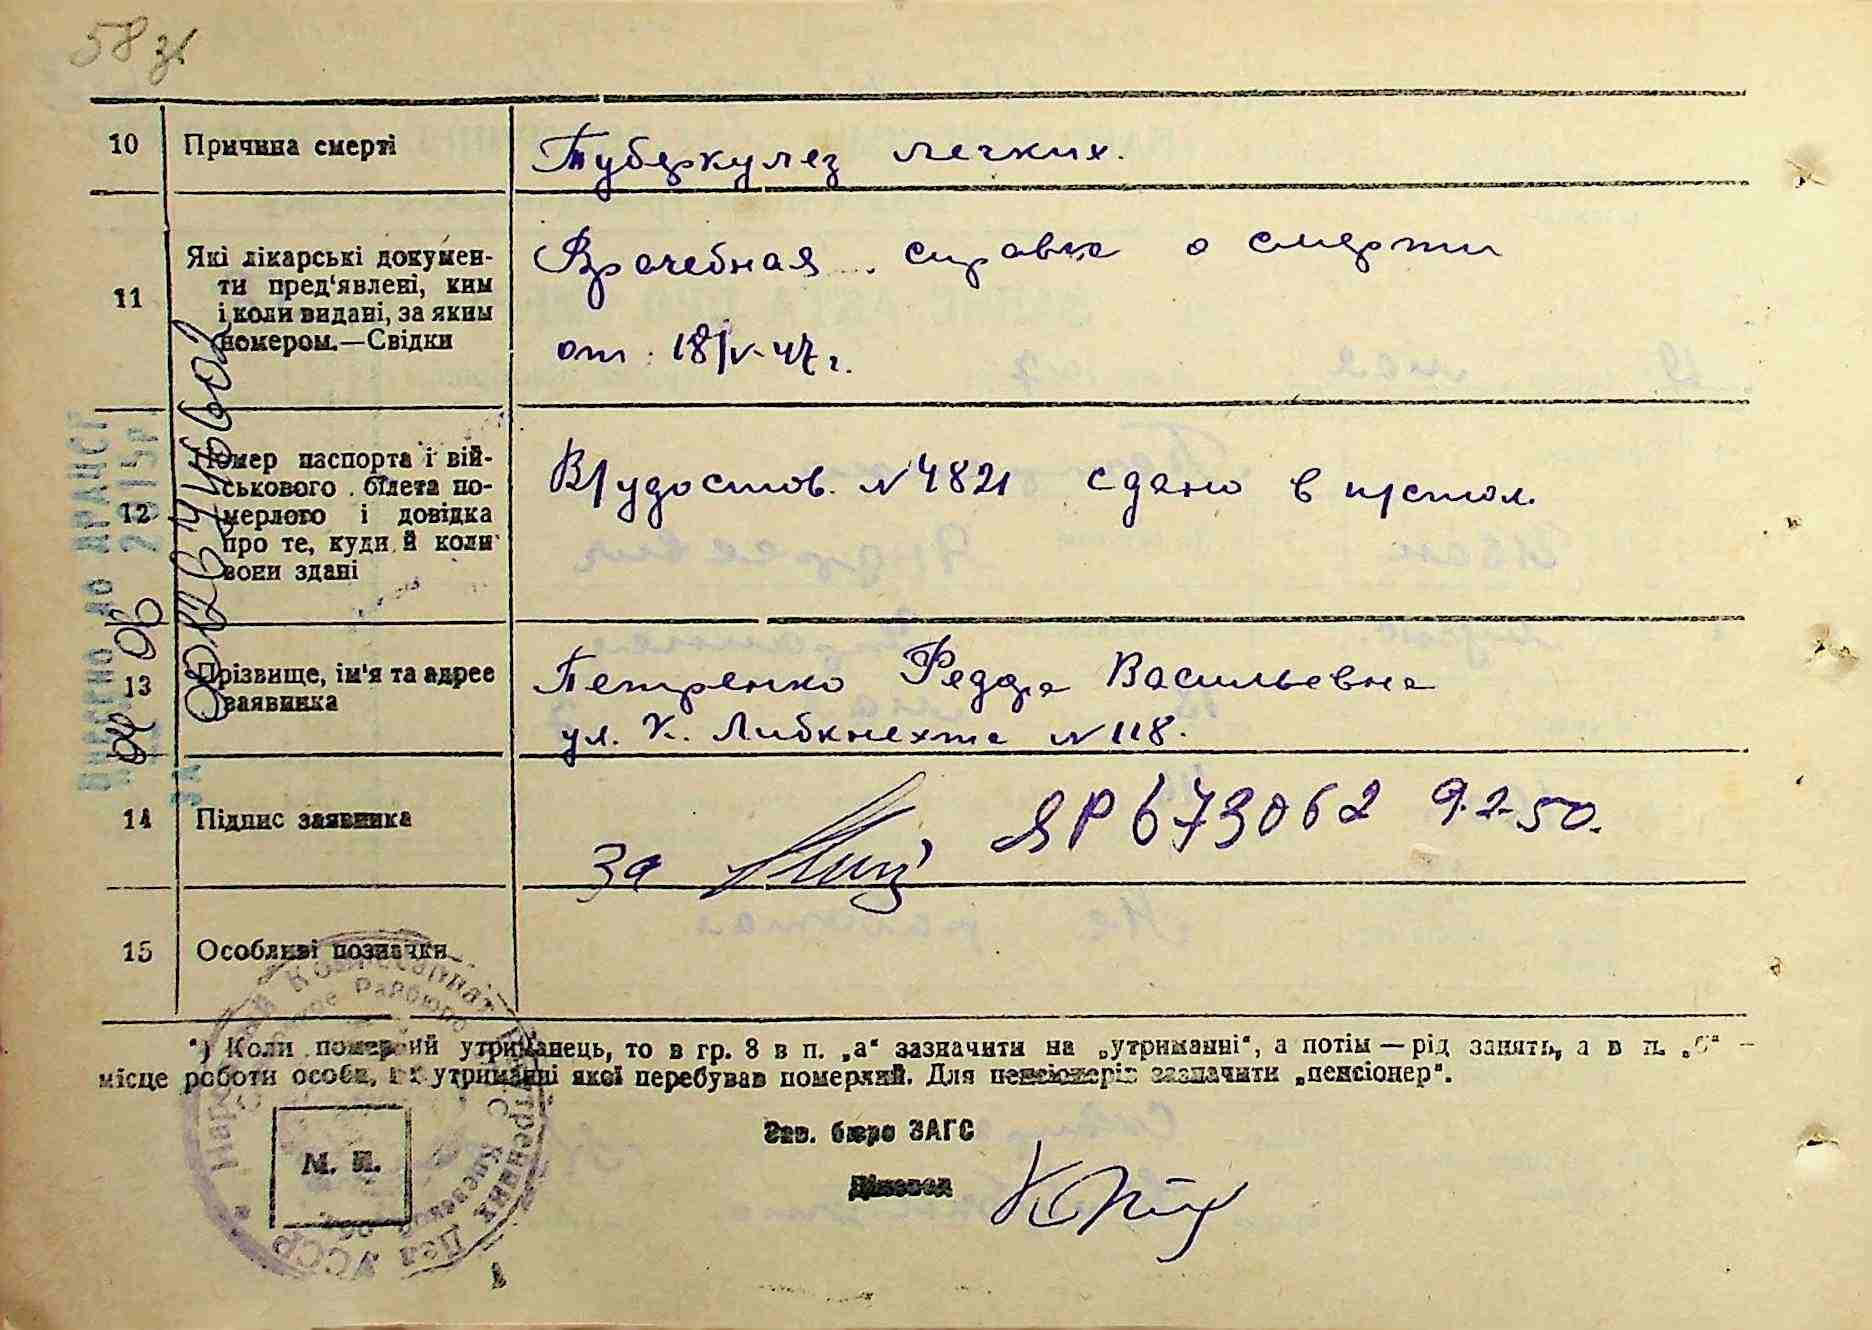 58 зв
10 Причина смерті Туберкулез легких.
11 Які лікарські докумен-
ти пред'явлені, ким
і коли видані, за яким
номером.—Свідки
Врачебная справка о смерти
от 18/V-47 г.
12 Номер паспорта і вій-
ськового білета по-
мерлого і довідка
про те, куди й коли
вони здані
В/удостов. №4821 сдано в п/стол.
13 Прізвище, ім'я та адрес
заявника
Петренко Федора Васильевна
ул. К. Либкнехта №118.
14 Підпис заявника
за ЯР 673062 9.2.50.
15 Особливі позначки
*) Коли померлий утриманець, то в гр. 8 в п. „а“ зазначити на „утриманні“, а потім — рід занять, а в п. „б“ —
місце роботи особи, на утриманні якої перебував померлий. Для пенсіонерів зазначити „пенсіонер“.
Зав. бюро ЗАГС
Діловод
М. П.
Внесено до ДРАЦСГ
2015р.
за №